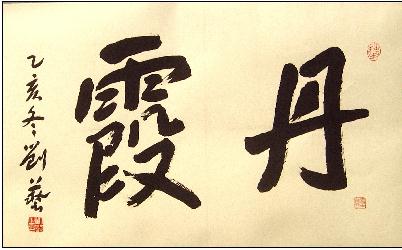 丹霞
乙亥冬劉藝